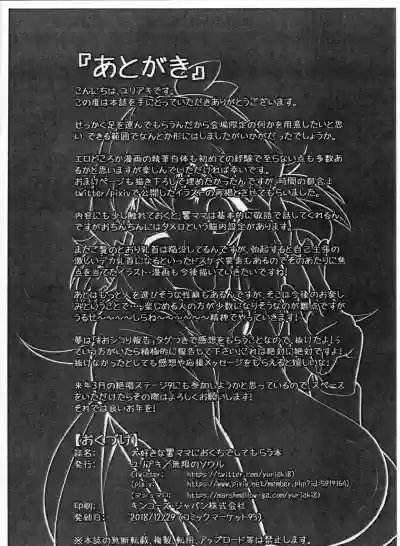 『あとがき』
こんにちは、ユリアキです。
この度は本誌を手にとっていただきありがとうございます。
せっかく足を運んでもらうんだから会場限定の何かを用意したいと思
い、できる範囲でなんとか形にはしましたがいかがだったでしょうか。
エロどころか漫画の執筆自体も初めての経験で至らない点も多数あ
るかと思いますが楽しんでいただければ幸いです。
おまけページも描き下ろしで埋めたかったんですが、時間の都合上
twitter/pixivで公開したイラストの再掲とさせてもらいました。
内容にも少し触れておくと、響ママは基本的に敬語で話してくれるん
ですがおちんちんにはタメ口という脳内設定があります。
またご覧のとおり乳首は陥没してるんですが、勃起すると自己主張の
激しいデカ乳首になるといったドスケベ要素もあるのでそのあたりに焦
点を当てたイラスト・漫画も今後描いていきたいですね！
あとはもっと人を選びそうな性癖もあるんですが、そこは今後のお楽し
みということで…
夢は「おシコり報告」タグつきで感想をもらうことなので、抜けたよ！っ
ていう方がいたら積極的に報告して下さい！これは絶対に絶対ですよ！
抜けなかったとしても感想や応援メッセージをもらえると嬉しいな！
来年3月の絶唱ステージ9にも参加しようかと思っているので、スペース
をいただけたらその際はよろしくお願いします！
それでは良いお年を！
【おくづけ】
誌名： 大好きな響ママにおくちでしてもらう本
発行： ユリアキ／無限のソウル
(twitter) https://twitter.com/yuriaki8
(pixiv) https://www.pixiv.net/member.php?id=5919164
(マシュマロ) https://marshmallow-qa.com/yuriaki8
印刷： キンコーズ・ジャパン株式会社
発行日： 2018/12/29 (コミックマーケット95)
※本誌の無断転載、複製、転用、アップロード等は禁止します。